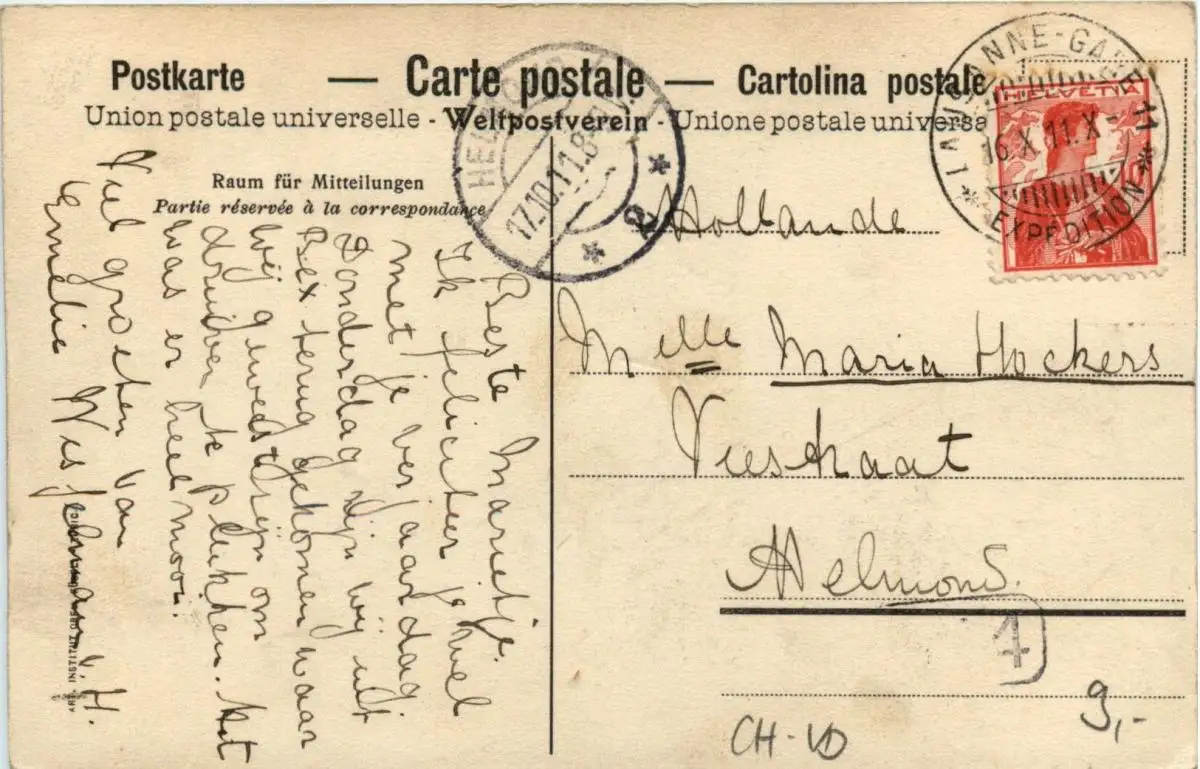 Postkarte — Carte postale — Cartolina postale
Union postale universelle - Weltpostverein - Unione postale universa
Raum für Mitteilungen
Partie réservée à la correspondance
Beste Marietje.
Ik feliciteer je wel
met je verjaardag.
Donderdag zijn wij uit
Bex terug gekomen waar
wij geweest zijn om
druiven te plukken. Het
was er heel mooi.
Veel groeten van
Emelie
LAUSANNE-GARE
16.X.11.X-
EXPEDITION
HELVETIA
HELMOND
17.10.11.8
2
Hollande
Melle Maria Hockers
Veestraat
Helmond.
4
9,-
CH-VD